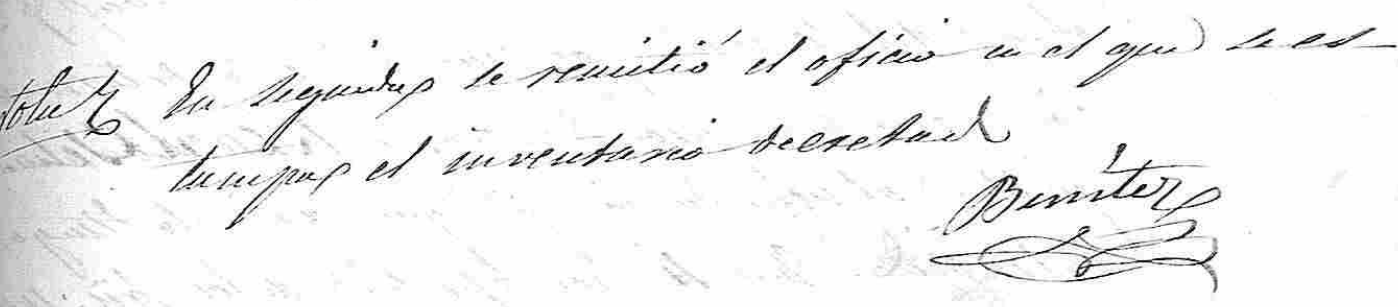 Nota En seguida se remitió el oficio en el que se es-
tampa el inventario decretad
Benítez